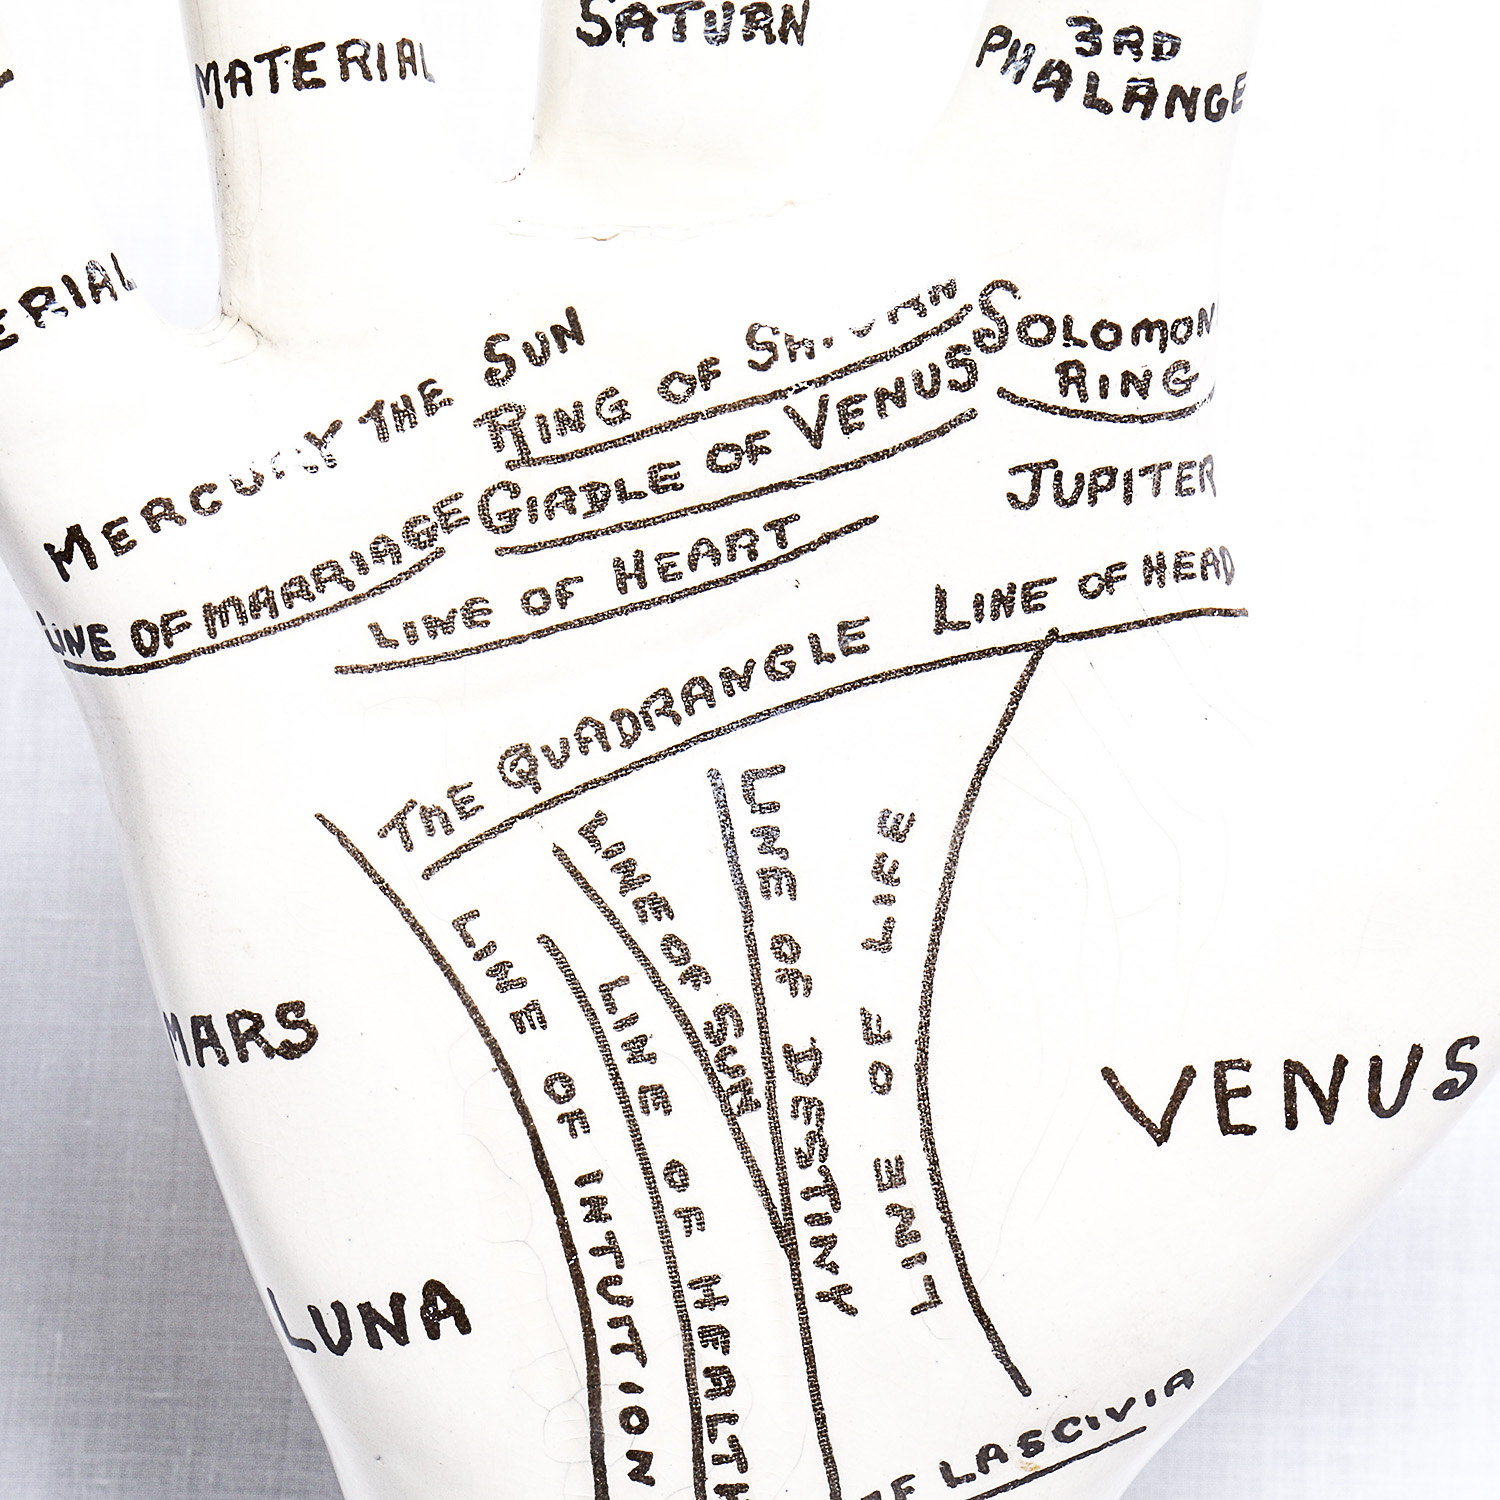 SATURN
MATERIAL
3RD
PHALANGE
ERIAL
SOLOMON
RING
THE SUN
RING OF SATURN
MERCURY
GIRDLE OF VENUS
JUPITER
LINE OF MARRIAGE
LINE OF HEART
LINE OF HEAD
THE QUADRANGLE
LINE OF INTUITION
LINE OF HEALTH
LINE OF SUN
LINE OF DESTINY
LINE OF LIFE
MARS
VENUS
LUNA
OF LASCIVIA